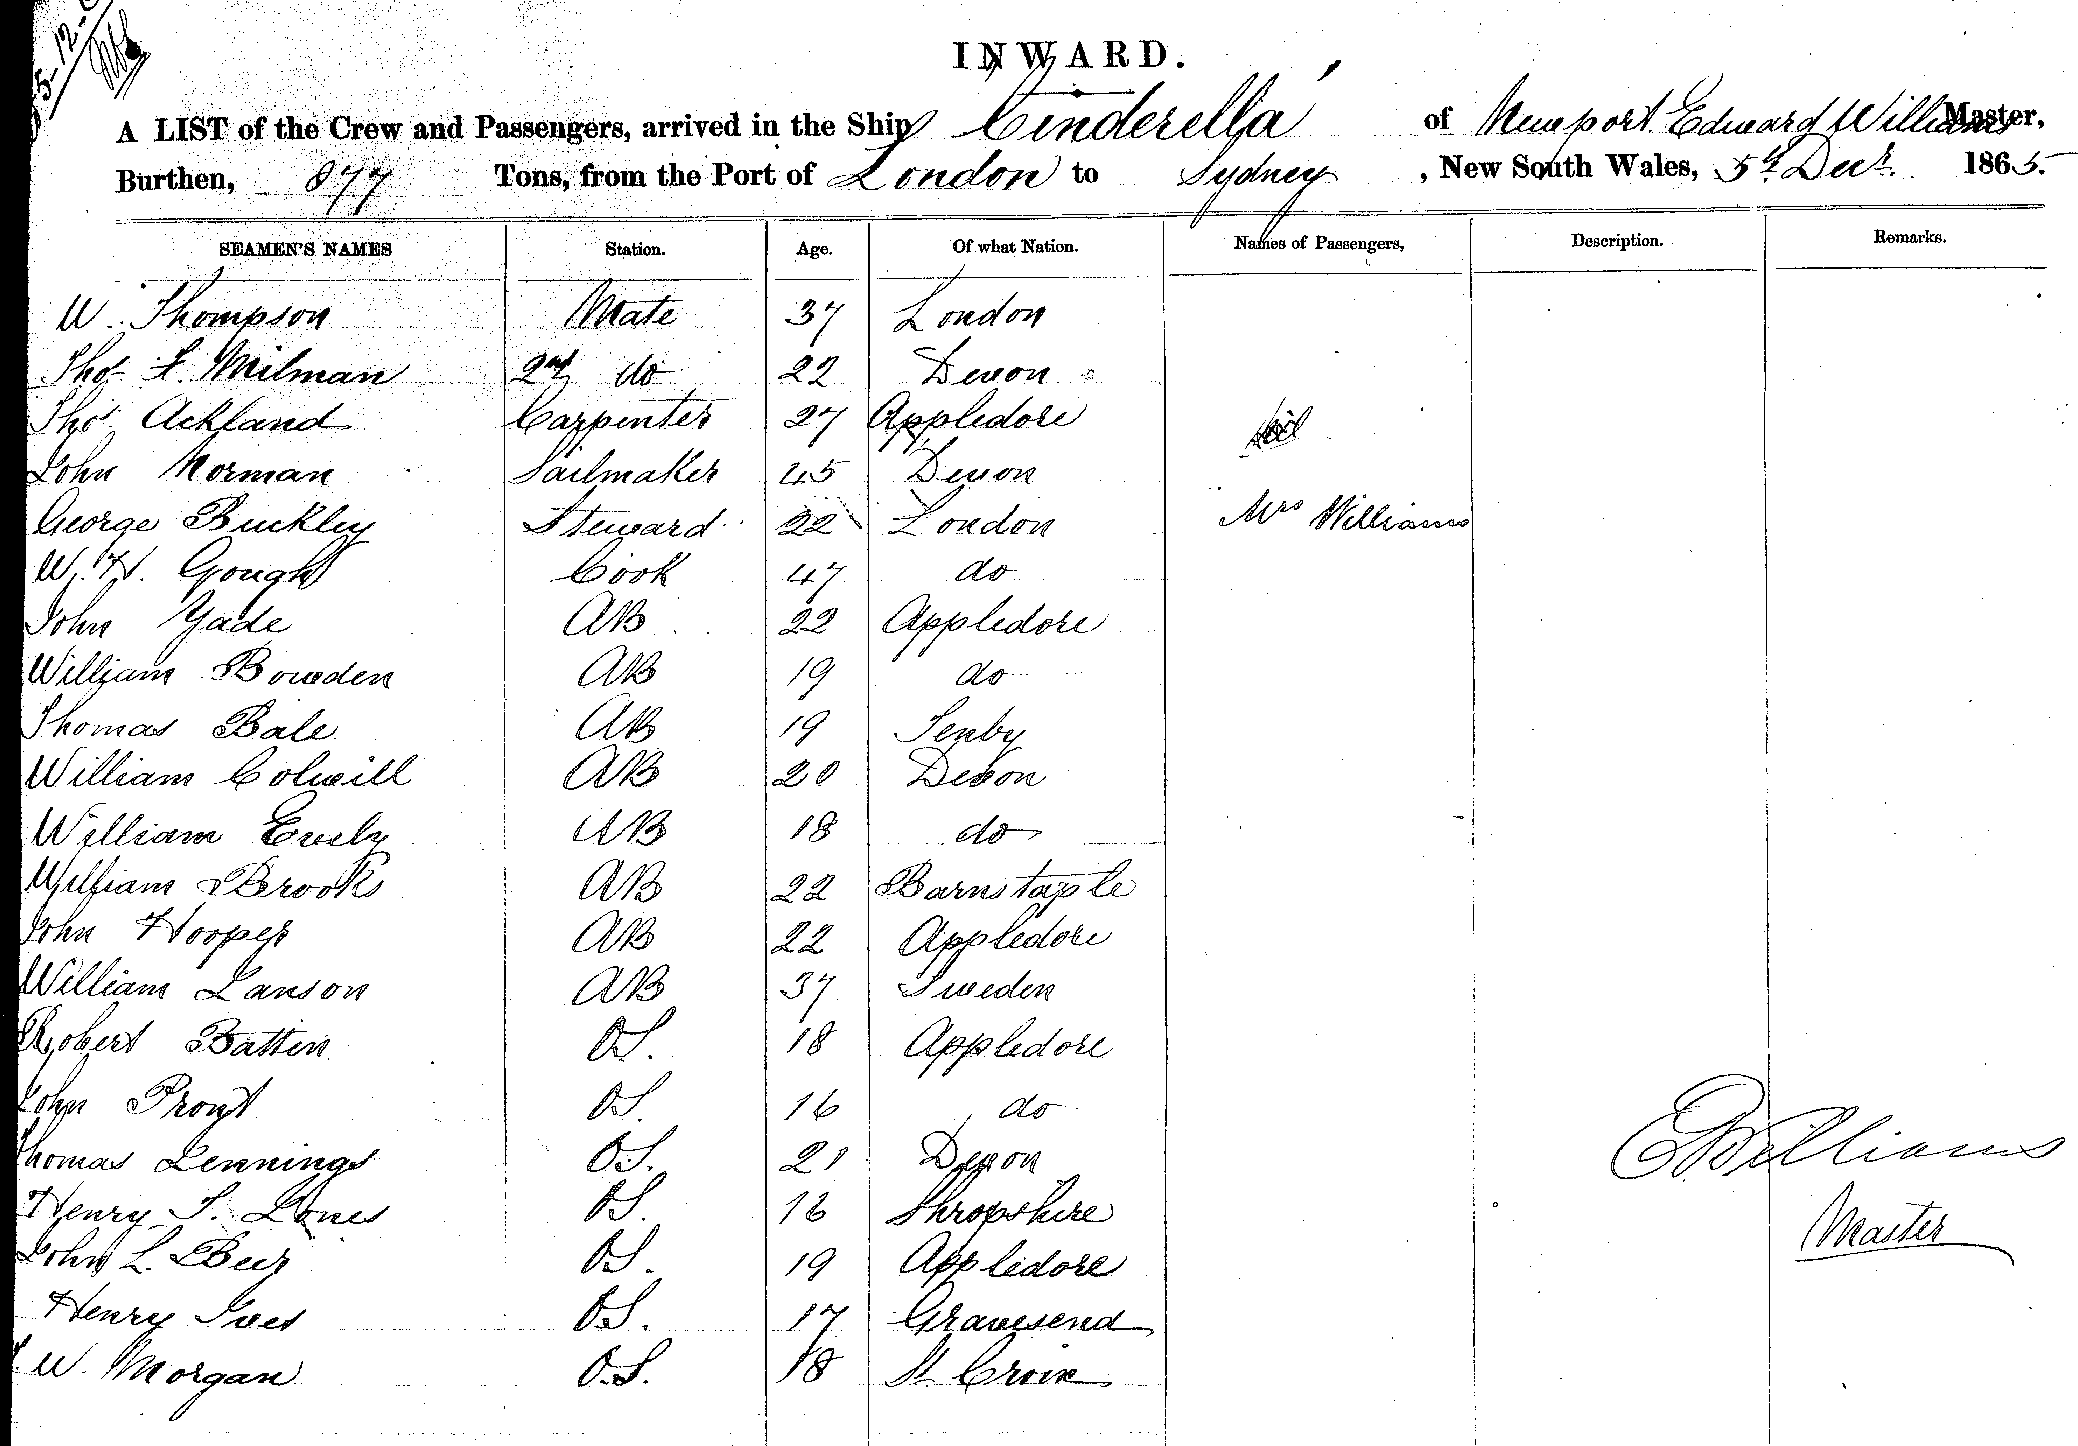 5-12-
INWARD.
A LIST of the Crew and Passengers, arrived in the Ship Cinderella of Newport Edward Williams Master,
Burthen, 877 Tons, from the Port of London to Sydney, New South Wales, 5th Decr. 1865.
SEAMEN'S NAMES Station. Age. Of what Nation. Names of Passengers, Description. Remarks.
W. Thompson Mate 37 London
Thos F. Milman 2nd do 22 Devon
Thos Ackland Carpenter 27 Appledore
John Norman Sailmaker 45 Devon
George Buckley Steward 22 London Mrs Williams
W. H. Gough Cook 47 do
John Yade AB 22 Appledore
William Bowden AB 19 do
Thomas Bale AB 19 Tenby
William Colwill AB 20 Devon
William Evely AB 18 do
William Brooks AB 22 Barnstaple
John Hooper AB 22 Appledore
William Lanson AB 37 Sweden
Robert Batten OS. 18 Appledore
John Prout OS. 16 do
Thomas Jennings O.S. 21 Devon
Henry S. Jones OS. 16 Shropshire
John L. Beer OS. 19 Appledore
Henry Ives OS. 17 Gravesend
W. Morgan O.S. 18 St Croix
E Williams
Master